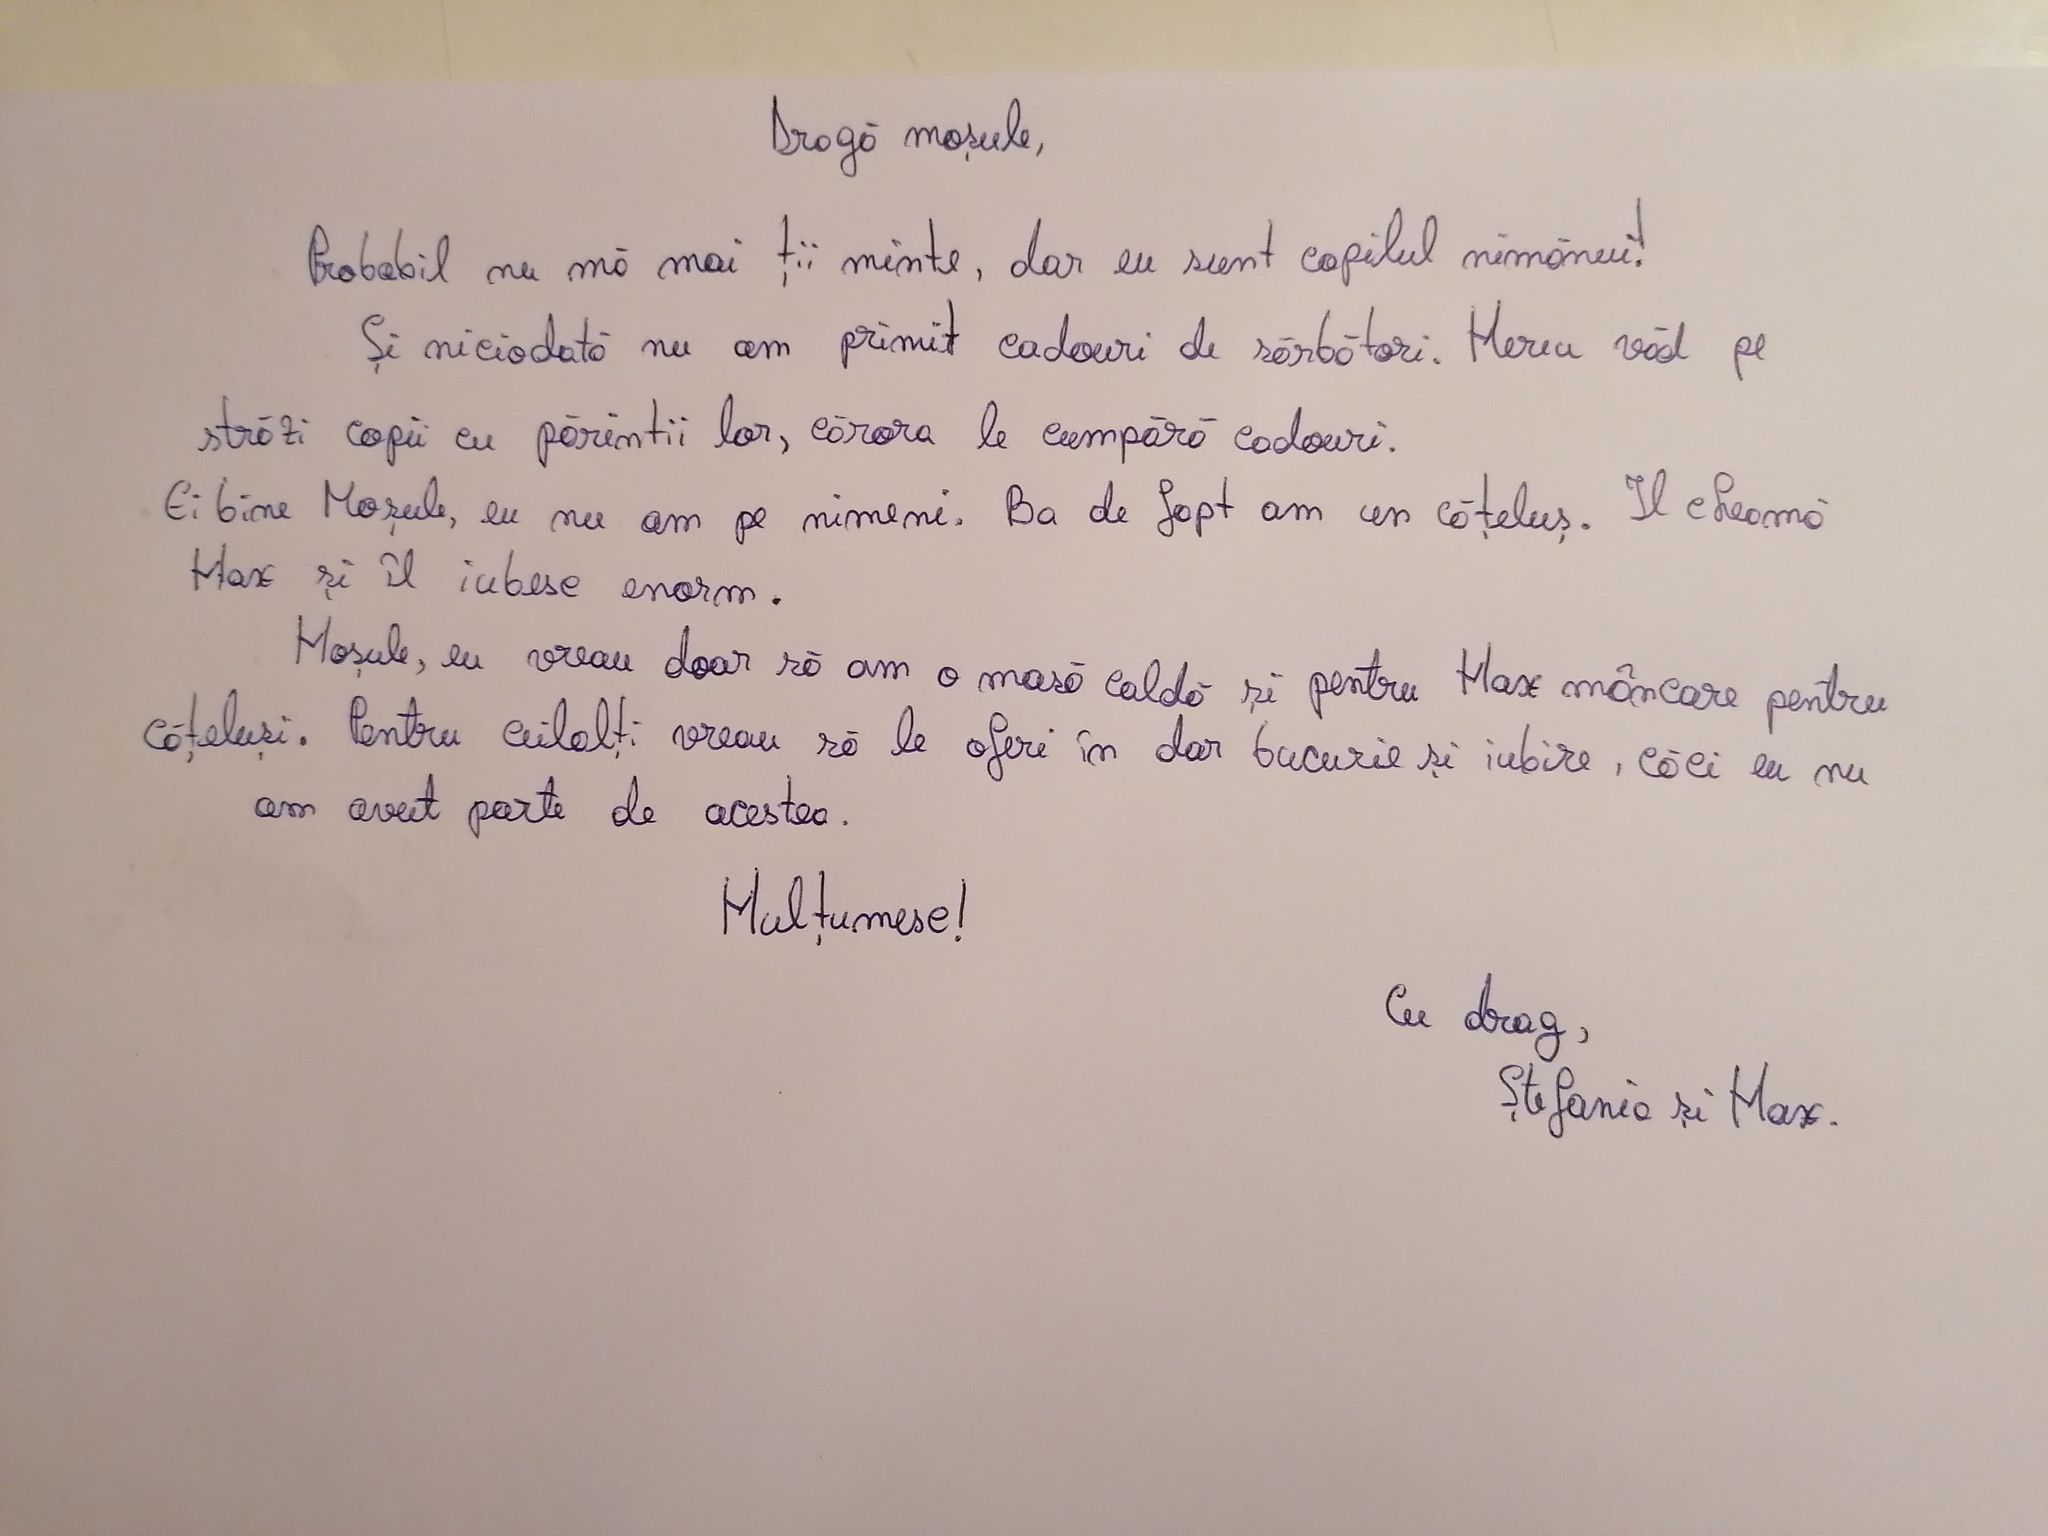 Dragă moșule,
Probabil nu mă mai ții minte, dar eu sunt copilul nimănui!
Și niciodată nu am primit cadouri de sărbători. Mereu văd pe
străzi copii cu părintii lor, cărora le cumpără cadouri.
Ei bine Moșule, eu nu am pe nimeni. Ba de fapt am un cățeluș. Il cheamă
Max și îl iubesc enorm.
Moșule, eu vreau doar să am o masă caldă și pentru Max mâncare pentru
cățeluși. Pentru ceilalți vreau să le oferi în dar bucurie și iubire, căci eu nu
am avut parte de acestea.
Mulțumesc!
Cu drag,
Ștefania și Max.